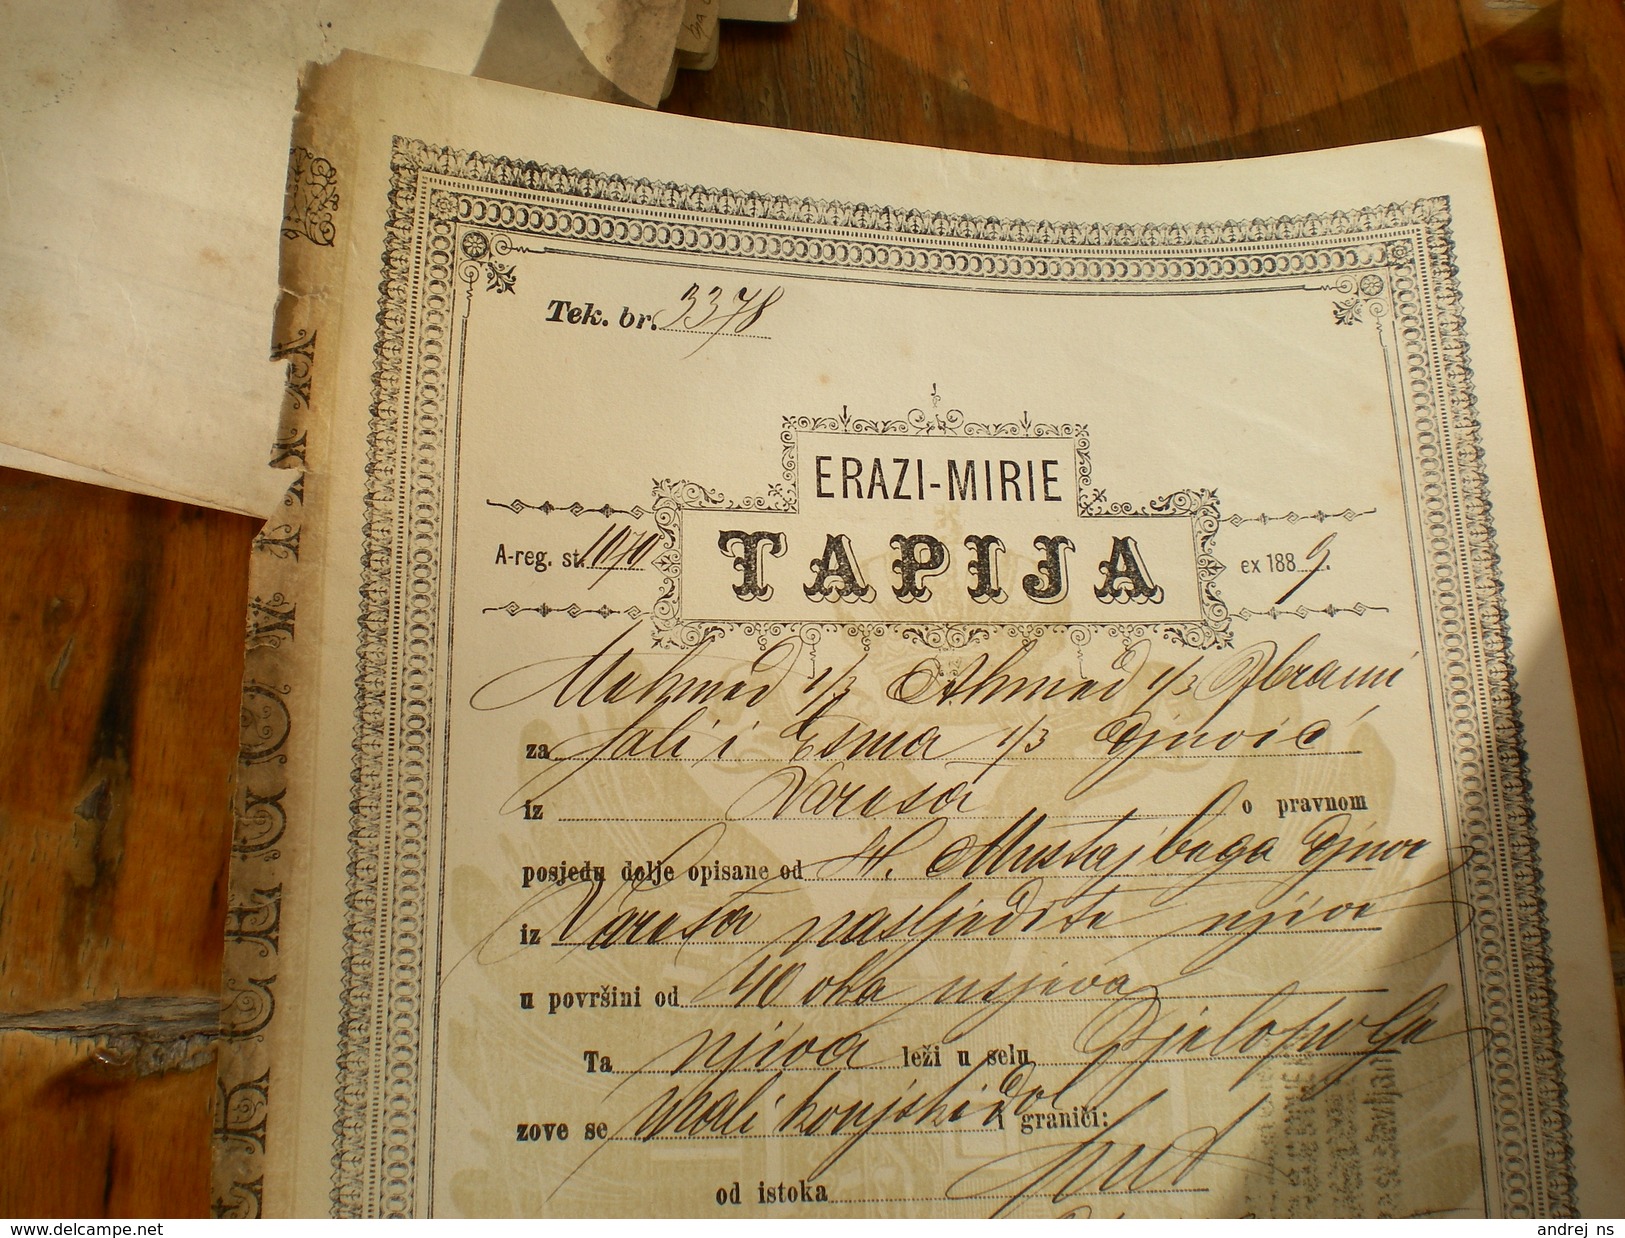 Tek. br. 3378
ERAZI-MIRIE
A-reg. st. 1070 TAPIJA ex 1889.
Mehmed 1/3 Ahmed 1/3 Ibraim
za Sali i Esma 1/3 Gjinović
iz Vareša o pravnom
posjedu dolje opisane od H. Mustajbega
iz Vareša nasljedite njive
u površini od 40 oka usjeva
Ta njiva leži u selu Bjelopolje
zove se Mali konjski Dol i graniči:
od istoka put
andrej ns